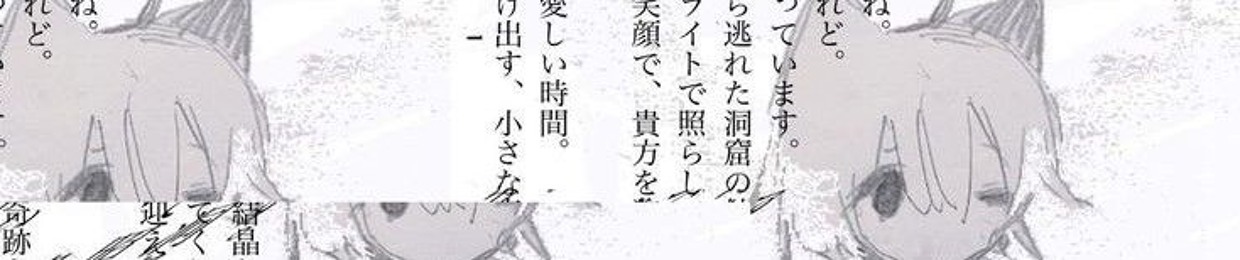 ね。
れど。
っています。
ら逃れた洞窟の
ライトで照らし
笑顔で、貴方を
愛しい時間。
け出す、小さな
ね。
れど。
結晶
てく
迎え
奇跡